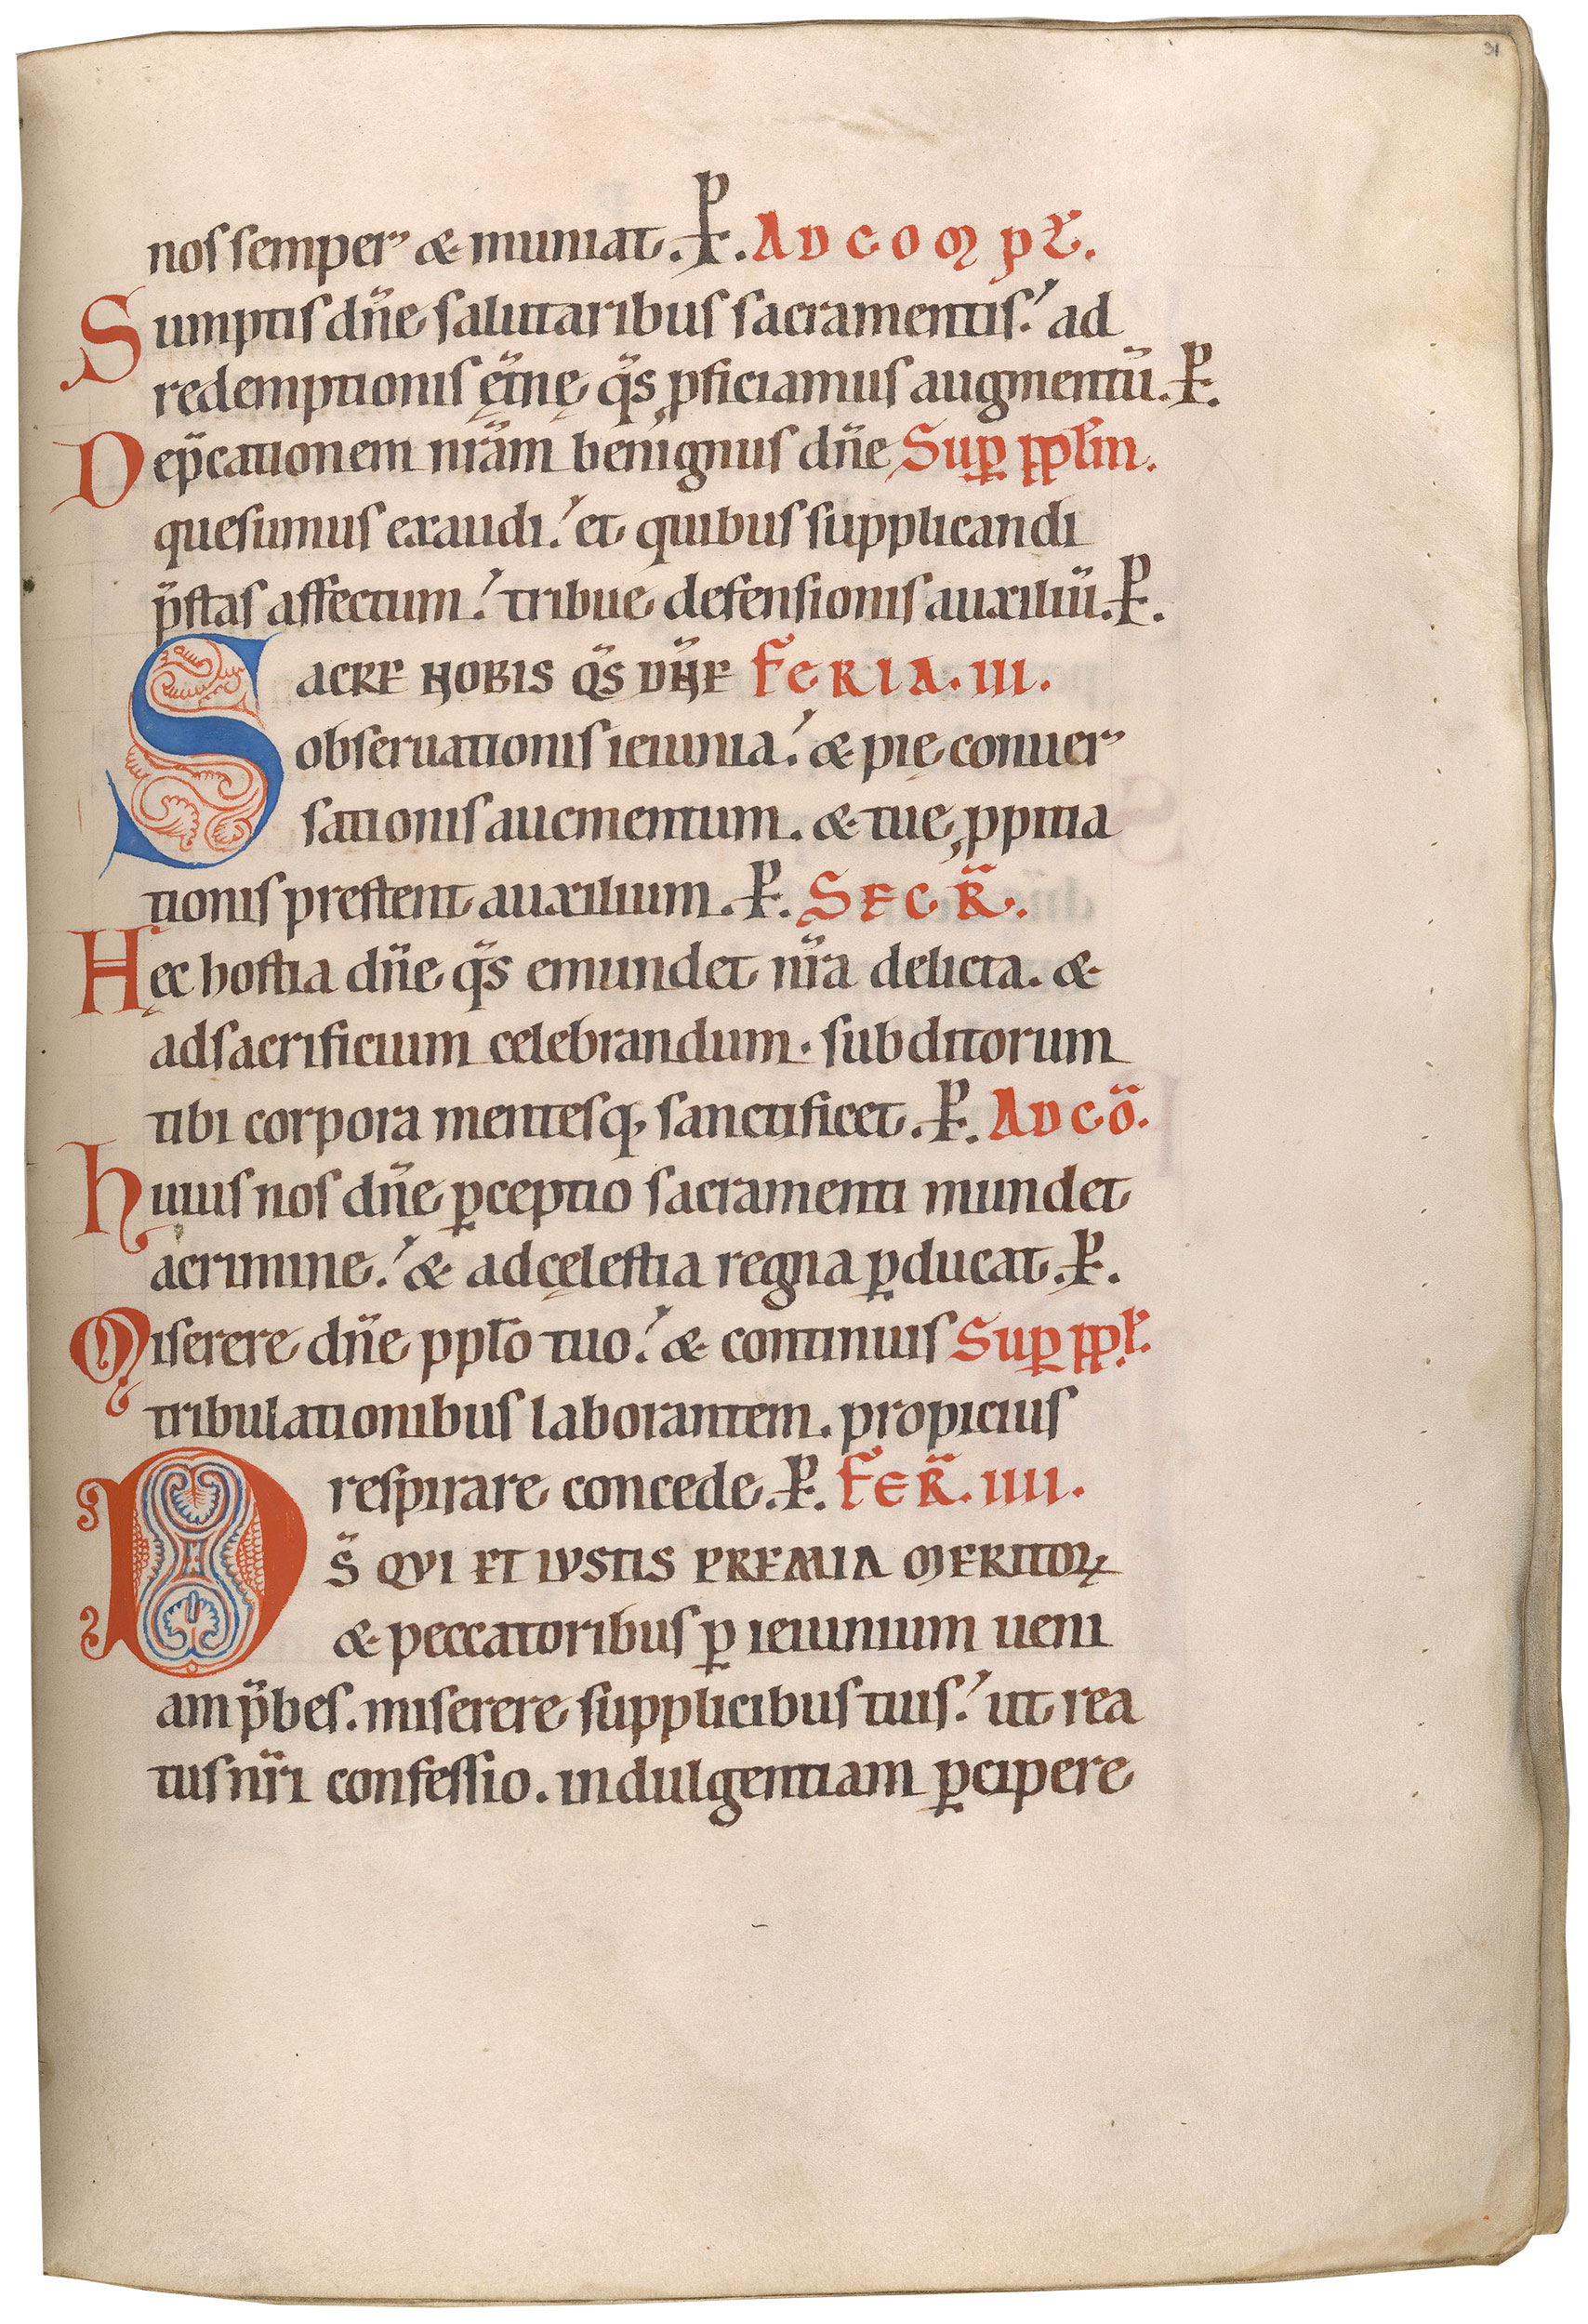 31
nos semper & muniat. P. AD COM PŁ.
Sumptis dn̄e salutaribus sacramentis. ad
redemptionis ęt̄nę q̄s ꝓficiamus augmentū. P.
Dep̄cationem nr̄am benignus dn̄e Suꝑ ppl̄m.
quesumus exaudi. et quibus supplicandi
p̄stas affectum. tribue defensionis auxiliū. P.
SACRE NOBIS Q̄S DN̄E FERIA. III.
obseruationis ieiunia. & pię conuer
sationis aucmentum. & tuę ꝓpitia
tionis prestent auxilium. P. SECR̄.
Hęc hostia dn̄e q̄s emundet nr̄a delicta. &
ad sacrificium celebrandum. subditorum
tibi corpora mentesq; sanctificet. P. AD CŌ.
Huius nos dn̄e ꝑceptio sacramenti mundet
a crimine. & ad cęlestia regna ꝑducat. P.
Miserere dn̄e ppl̄o tuo. & continuis Suꝑ ppl̄.
tribulationibus laborantem. propicius
respirare concede. P. FER̄. IIII.
DS̄ QVI ET IVSTIS PREMIA MERITOꝜ
& peccatoribus ꝑ ieiunium ueni
am p̄bes. miserere supplicibus tuis. ut rea
tus nr̄i confessio. indulgentiam ꝑcipere